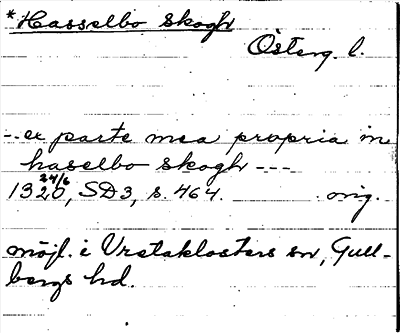 *Hasselbo skogh
Österg. l.
-- ex parte mea propria in
haselbo skogh ---
1320 24/6, SD3, s. 464. orig.
möjl. i Vretaklosters sn, Gull-
bergs hd.